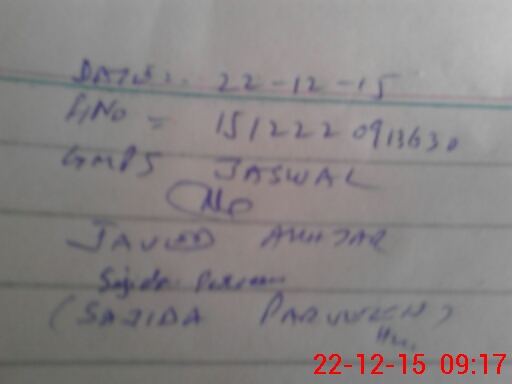 DATE:- 22-12-15
151222 0913630
GMPS JASWAL
JAVED AKHTAR
Sajida Parveen
(SAJIDA PARVVEEN)
22-12-15 09:17